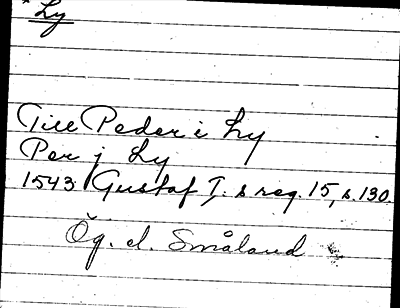 * Ly
Till Peder i Ly
Per j Ly
1543 Gustaf I. s reg. 15, s. 130.
Ög. el. Småland